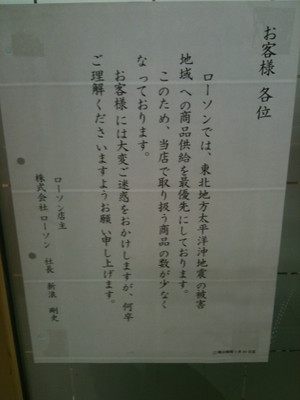 お客様 各位
ローソンでは、東北地方太平洋沖地震の被害
地域への商品供給を最優先にしております。
このため、当店で取り扱う商品の数が少なく
なっております。
お客様には大変ご迷惑をおかけしますが、何卒
ご理解くださいますようお願い申し上げます。
ローソン店主
株式会社ローソン 社長 新浪 剛史